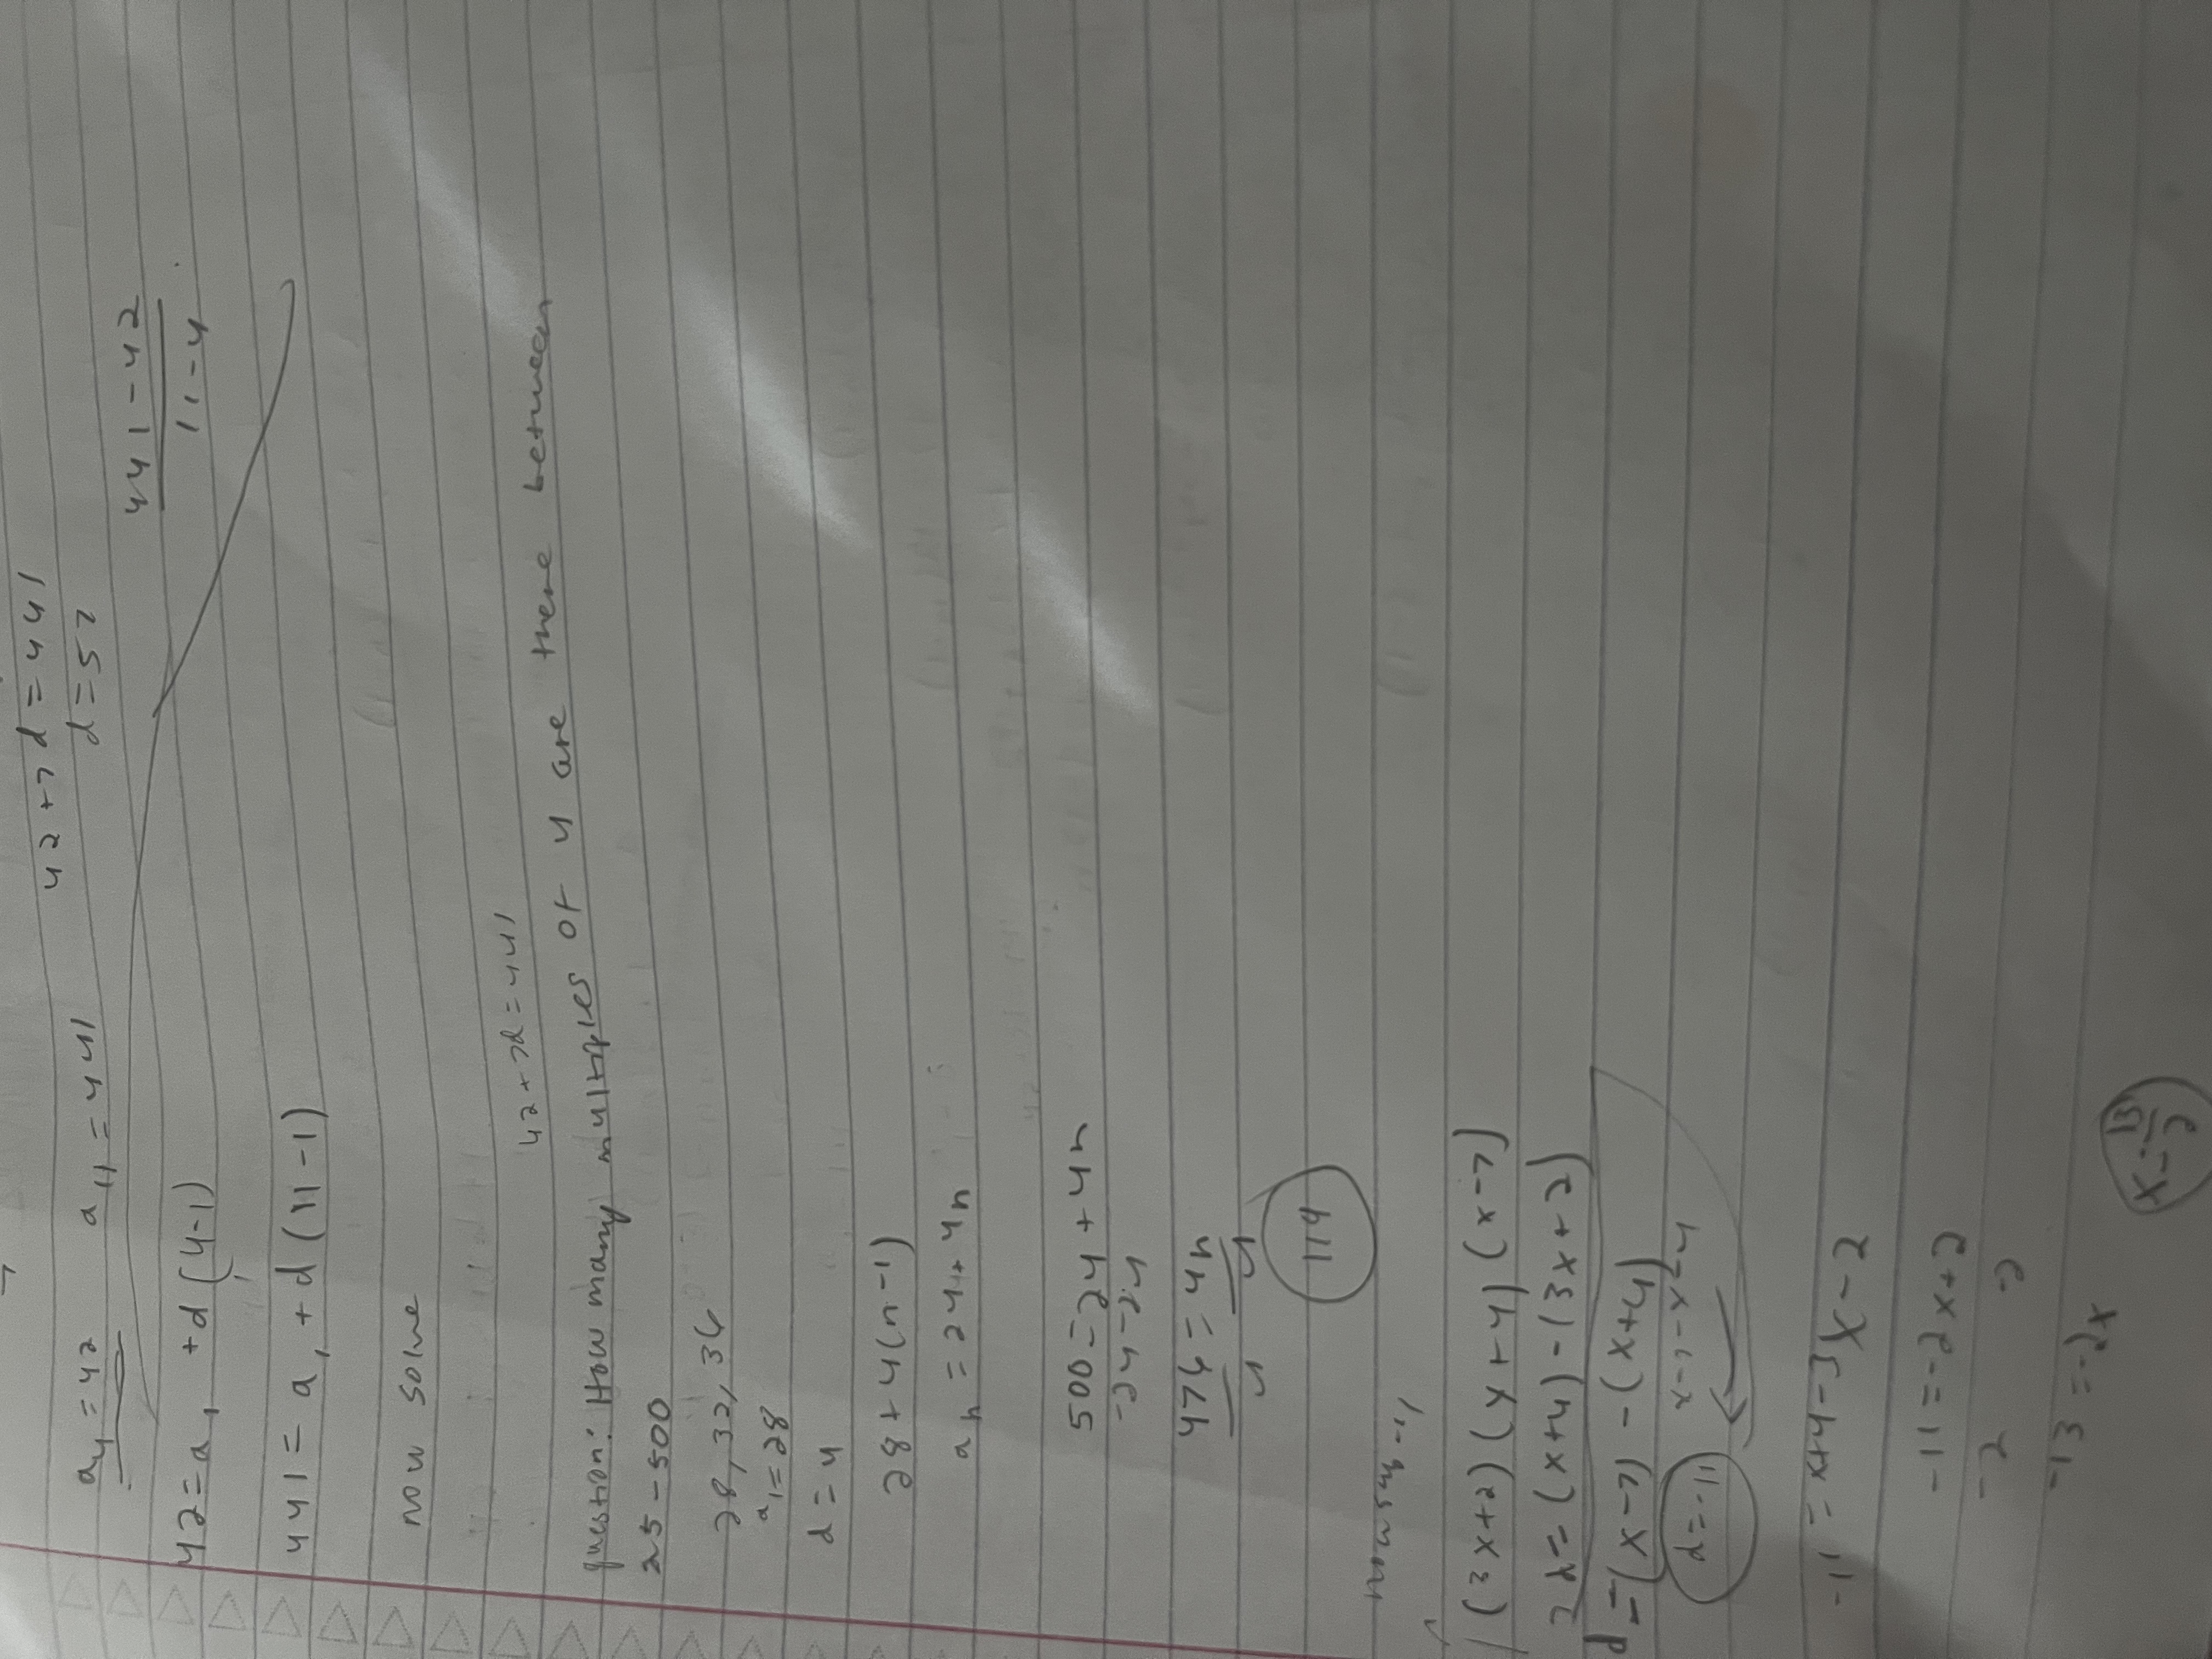 42+7d=441
a₄=42 a₁₁=441 d=57
441-42
11-4
42=a₁+d(4-1)
441=a₁+d(11-1)
now solve
42+7d=441
question: How many multiples of 4 are there between
25-500
28,32,36
a₁=28
d=4
28+4(n-1)
aₙ=24+4n
500=24+4n
-24-24
476=4n
4 4
119
(3x+2)(x+4)(x-7)
2d=(x+4)-(3x+2)
d=(x-7)-(x+4)
x-7-x-4
d=-11
-11=x+4-3x-2
-11=-2x+2
-2 -2
-13=-2x
x=13/2